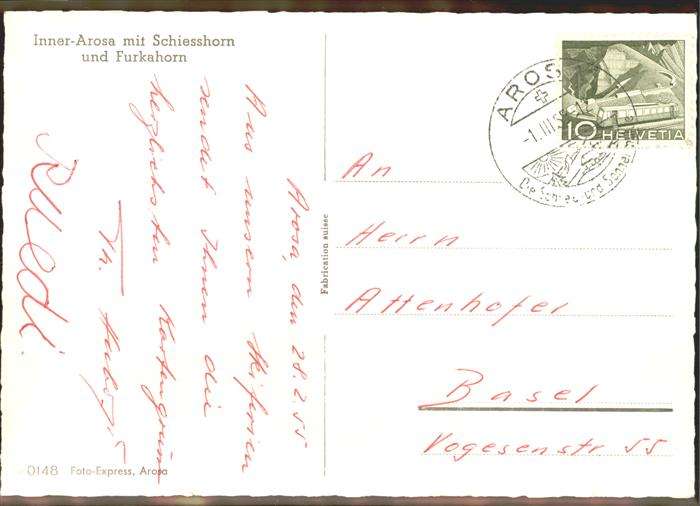 Inner-Arosa mit Schiesshorn
und Furkahorn
Arosa, den 28.2.55
Aus unsern Skiferien
sendet Ihnen die
herzlichsten Kartengrüsse
Ruedi.
Fabrication suisse
AROSA
-1.III.55
Die Schnee und Sonne
10 HELVETIA
An
Herrn
Attenhofer
Basel
Vogesenstr 55
0148 Foto-Express, Arosa